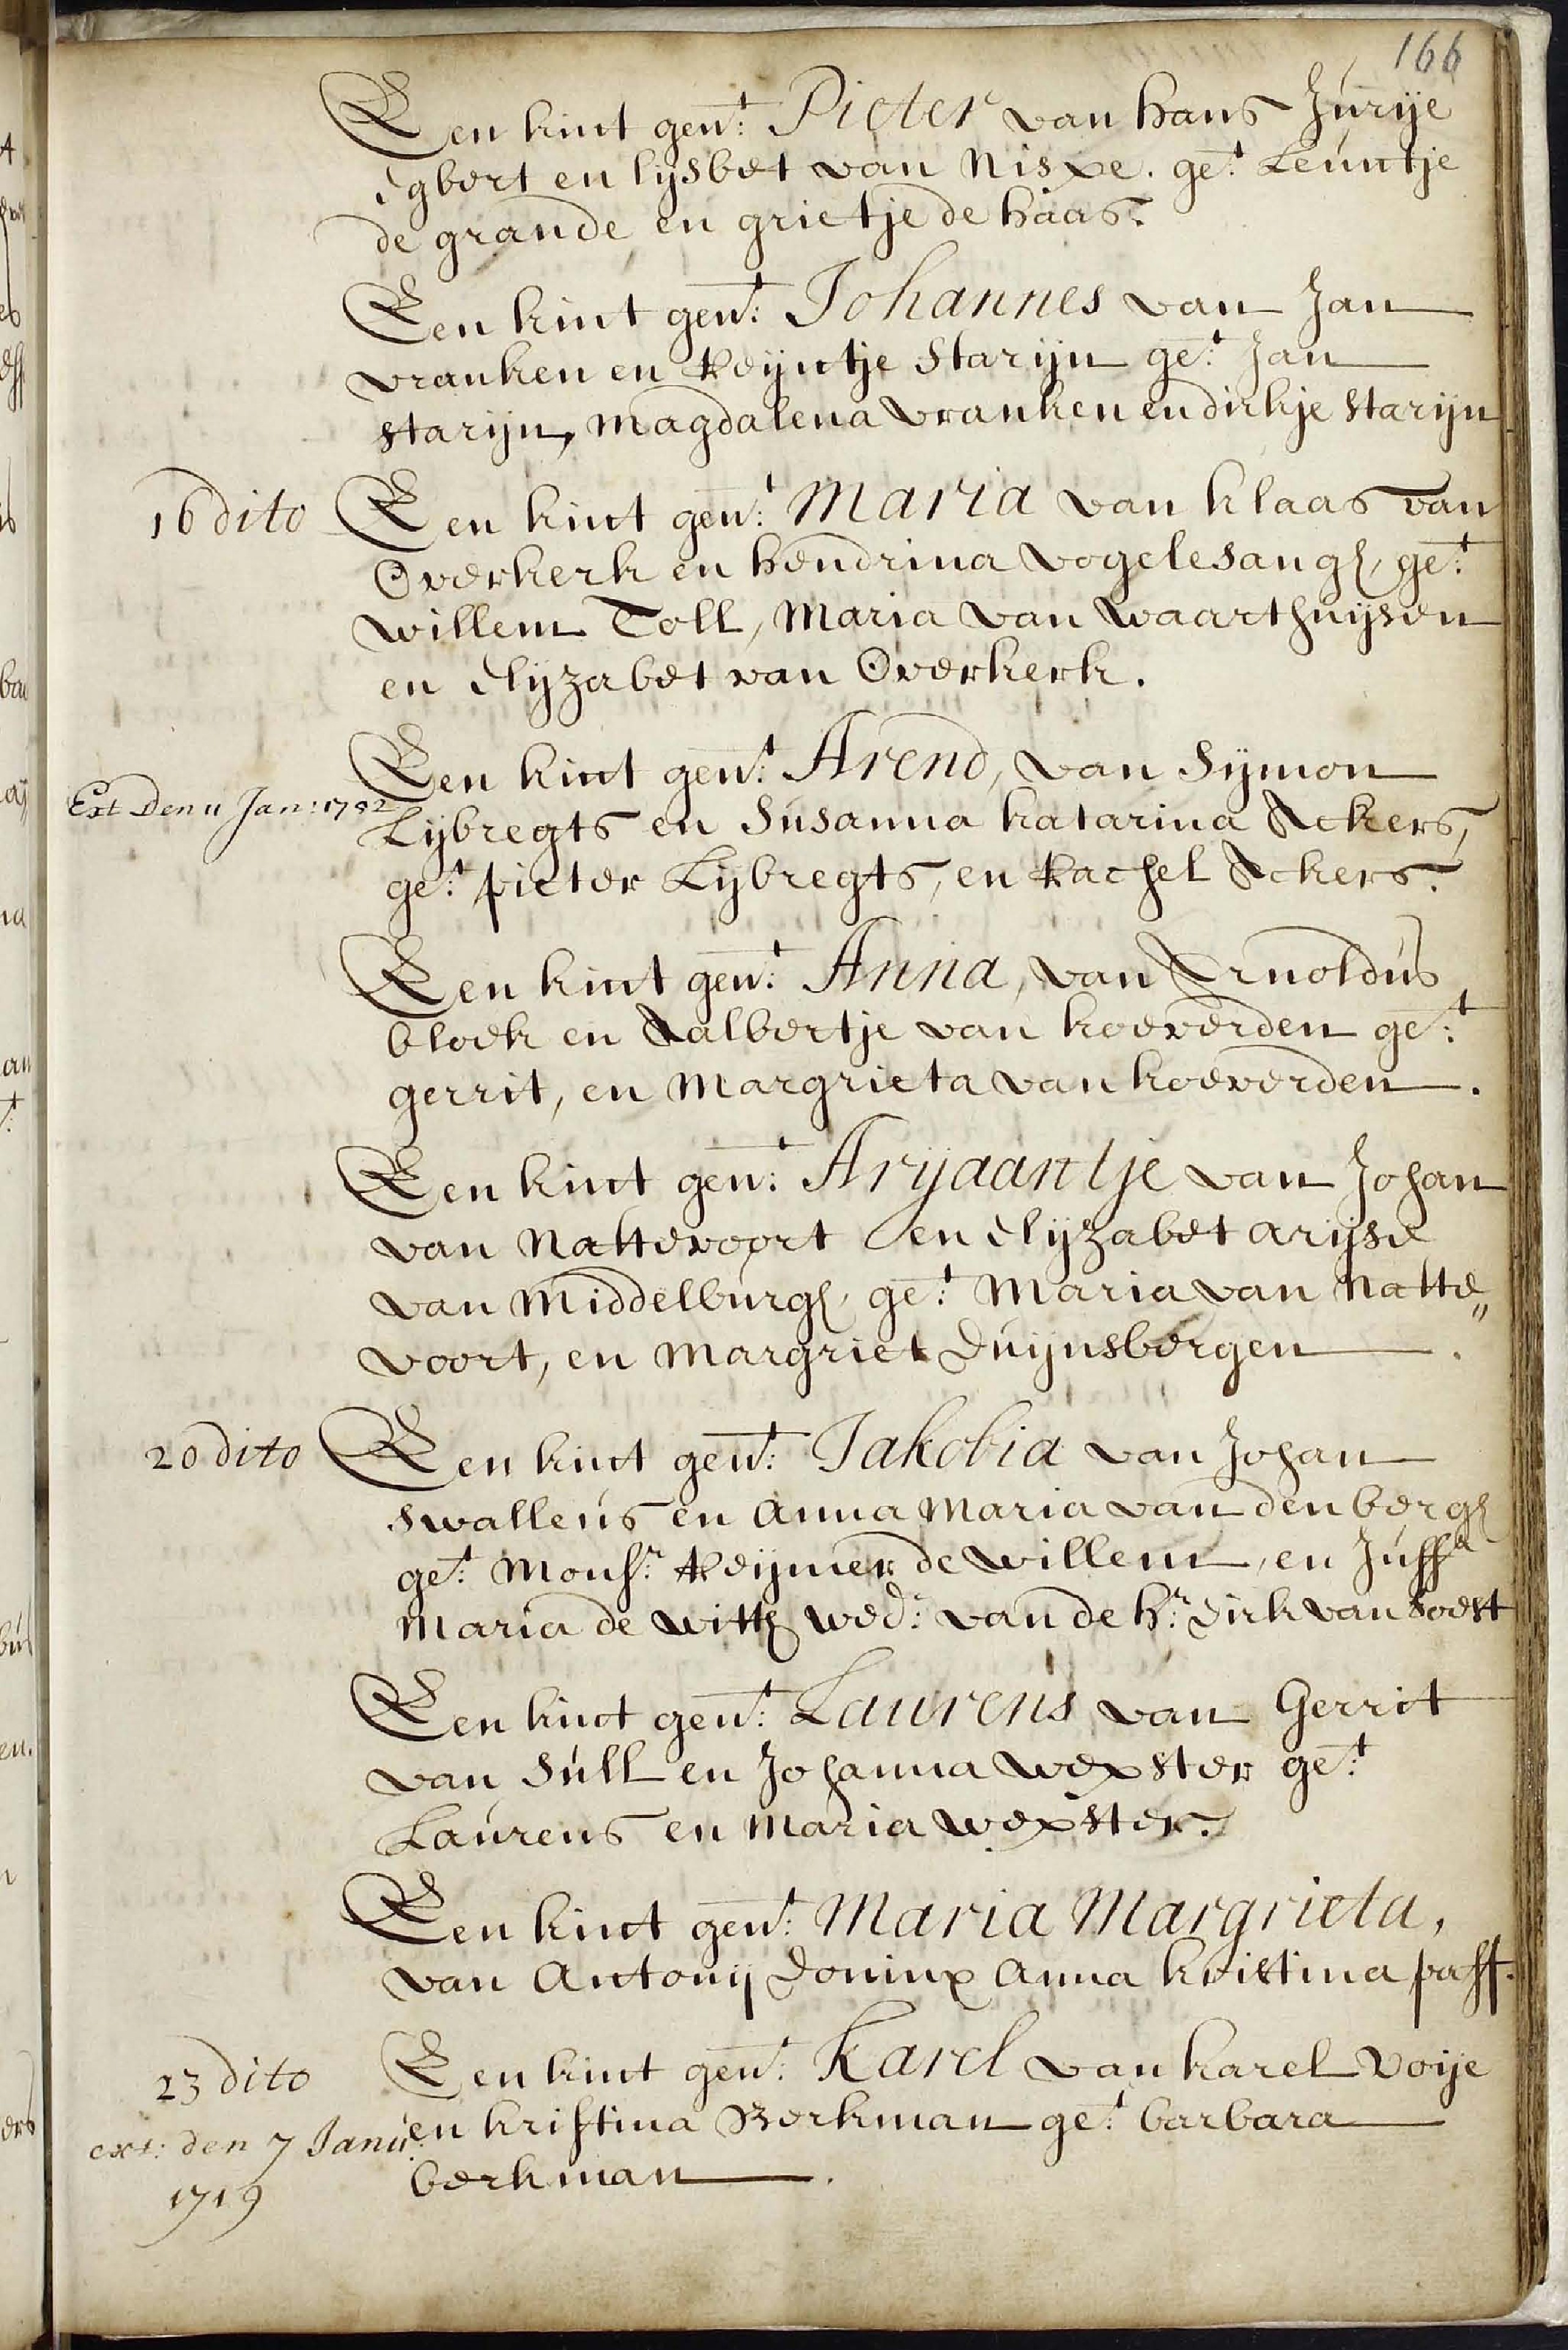 166
Een kint gen:t Pieter van hans Jurije
Egbert en lijsbet van Nispe. ge:t Leuntje
de grande en grietje de haas.
Een kint gen:t Johannes van Jan
vranken en Reijntje Starijn ge:t Jan
starijn, Magdalena vranken en dirkje Starijn
16 dito Een kint gen:t Maria van klaas van
Overkerk en hendrina vogelesangh, ge:t
willem Toll, Maria van waarthuijsen
en Elijzabet van Overkerk.
Een kint gen:t Arend, van Sijmon
Ext Den 11 Jan: 1752
Lijbregts en Susanna katarina Ackers,
ge:t pieter Lijbregts, en Rachel Ackers.
Een kint gen:t Anna, van Arnoldus
bloek en Aalbertje van koeverden ge:t
gerrit, en Margrieta van koeverden.
Een kint gen:t Arijaantje van Johan
van Nattevoort en Elijzabet arijse
van Middelburgh, ge:t Maria van Natte„
voort, en Margriet Duijnsbergen.
20 dito Een kint gen:t Jakobia van Johan
Swalleus en Anna Maria van den bergh
ge:t Mons:r Reijmer de willem, en Juff:r
Maria de witth wed: van de h:r Dirk van Soest
Een kint gen:t Laurens van Gerrit
van Sull en Johanna wexster ge:t
Laurens en Maria wexster.
Een kint gen:t Maria Margrieta,
van Antonij Doninx Anna kristina paff.
23 dito Een kint gen:t Karel van karel voije
ext: den 7 Janu: en kristina Berkman ge:t barbara
1719 berkman.